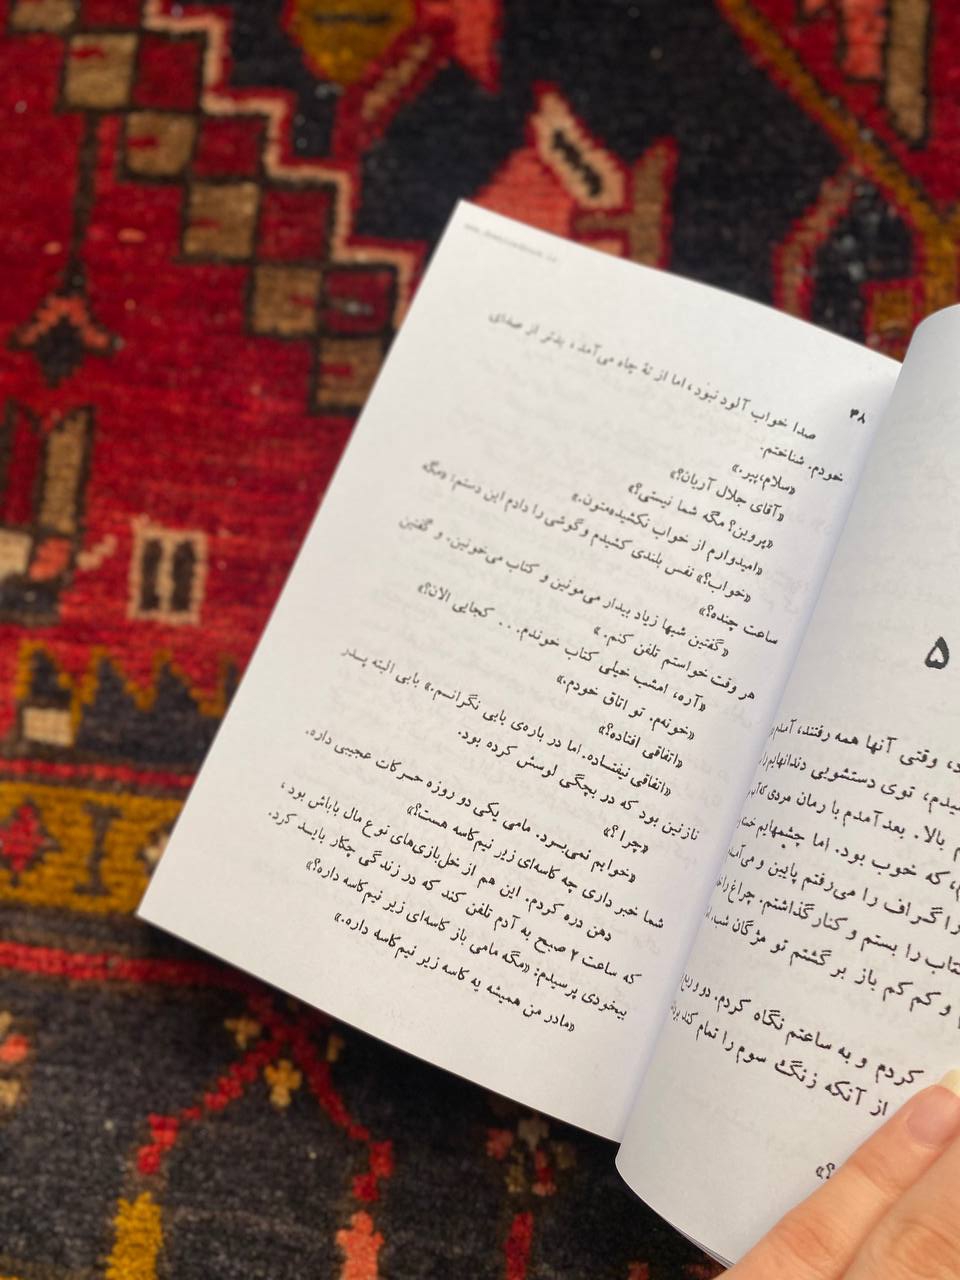 ۵
وقتی آنها همه رفتند، آمدم
توی دستشویی دندانهایم را
بالا. بعد آمدم با رمان مردی که
که خوب بود. اما چشمهایم
را گراف را می‌رفتم پایین و می‌آمدم
کتاب را بستم و کنار گذاشتم. چراغ را
و کم کم باز برگشتم تو مژگان شب،
کردم و به ساعتم نگاه کردم. دو و ربع
از آنکه زنگ سوم را تمام کند
۳۸
صدا خواب آلود نبود، اما از تهٔ چاه می‌آمد، بدتر از صدای
خودم. شناختم.
«سلام، پیر.»
«آقای جلال آریان؟»
«پروین؟ مگه شما نیستی؟»
«امیدوارم از خواب نکشیده‌متون.»
«خواب؟» نفس بلندی کشیدم و گوشی را دادم این دستم: «مگه
ساعت چنده؟»
«گفتین شبها زیاد بیدار می‌مونین و کتاب می‌خونین. و گفتین
هر وقت خواستم تلفن کنم.»
«آره، امشب خیلی کتاب خوندم... کجایی الان؟»
«خونه‌م. تو اتاق خودم.»
«اتفاقی افتاده؟»
«اتفاقی نیفتساده. اما در باره‌ی بابی نگرانسم.» بابی البته پسدر
نازنین بود که در بچگی لوسش کرده بود.
«چرا؟»
«خوابم نمی‌بسرد. مامی یکی دو روزه حسرکات عجیبی داره.
شما خبر داری چه کاسه‌ای زیر نیم‌کاسه هست؟»
دهن دره کردم. این هم از خل‌بازی‌های نوع مال باباش بود،
که ساعت ۲ صبح به آدم تلفن کند که در زندگی چکار بایسد کرد.
بیخودی پرسیدم: «مگه مامی باز کاسه‌ای زیر نیم‌کاسه داره؟»
«مادر من همیشه یه کاسه زیر نیم‌کاسه داره.»